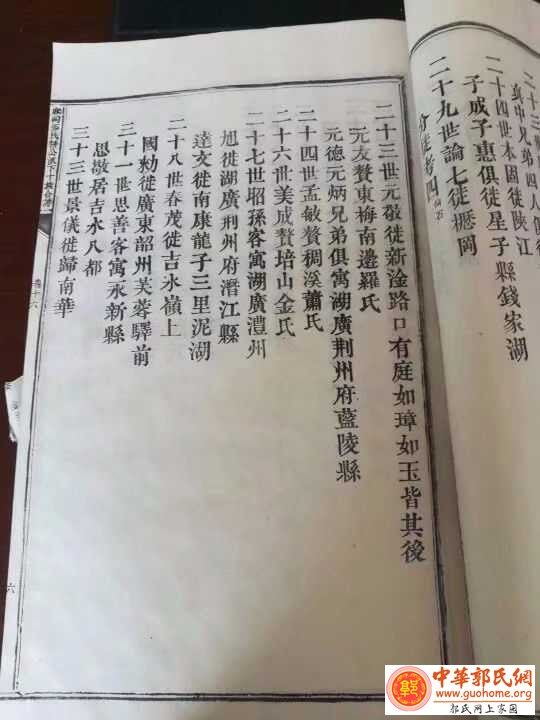 二十四世本固徙陝江
子成子惠俱徙星子縣錢家湖
二十九世論七徙樅岡
分徙考四
二十三世元敬徙新淦路口有庭如璋如玉皆其後
元友贅東梅南邊羅氏
元德元炳兄弟俱寓湖廣荆州府藍陵縣
二十四世孟敏贅稠溪蕭氏
二十六世美成贅培山金氏
二十七世昭孫客寓湖廣澧州
旭徙湖廣荆州府潛江縣
達文徙南康龍子三里泥湖
二十八世春茂徙吉水嶺上
國勑徙廣東韶州芙蓉驛前
三十一世思善客寓永新縣
思敬居吉水八都
三十三世景儀徙歸南華
六
中華郭氏網
www.guohome.org
郭氏网上家园